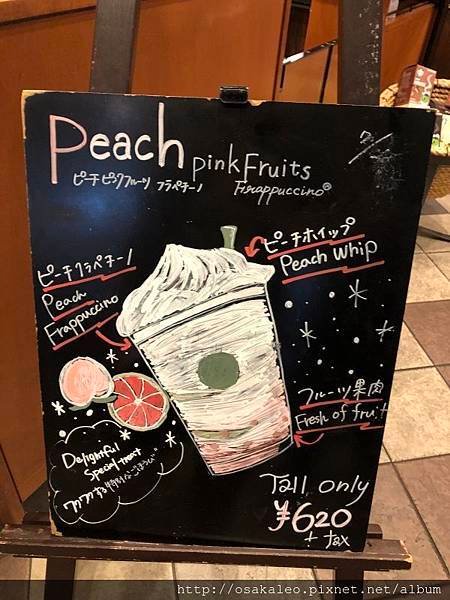 Peach pink Fruits
ピーチ ピンクフルーツ フラペチーノ Frappuccino®
ピーチホイップ
Peach Whip
ピーチフラペチーノ
Peach
Frappuccino
フルーツ果肉
Flesh of fruit
Delightful
Special treat
Tall only
¥620
+ tax
http://osakaleo.pixnet.net/album